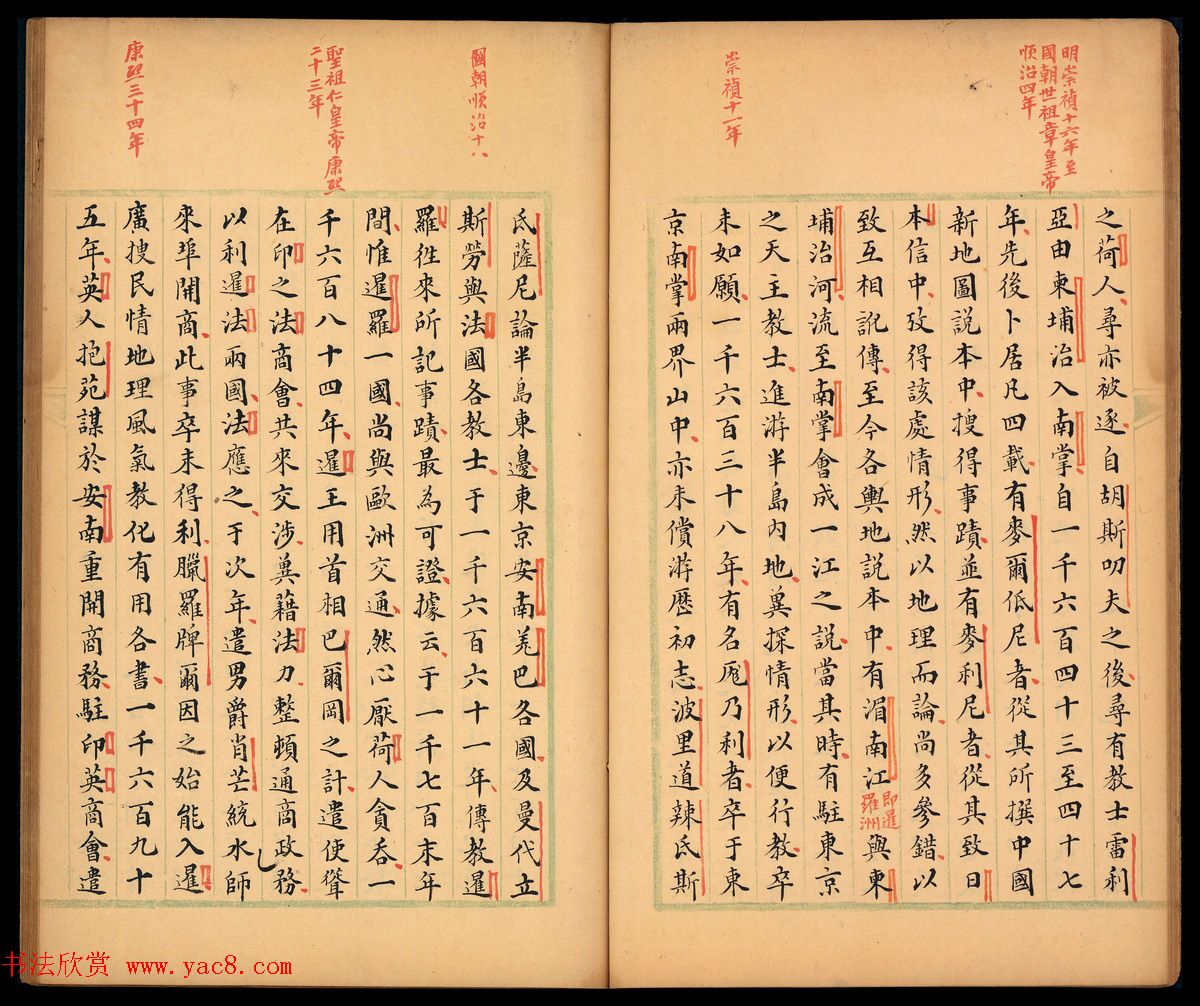 明崇禎十六年至
國朝世祖章皇帝
順治四年
崇禎十一年
之荷人尋亦被逐自胡斯叨夫之後尋有教士雷利
亞由東埔治入南掌自一千六百四十三至四十七
年先後卜居凡四載有麥爾低尼者從其所撰中國
新地圖說本中搜得事蹟並有麥利尼者從其致日
本信中攷得該處情形然以地理而論尚多參錯以
致互相訛傳至今各輿地說本中有湄南江即暹羅洲與東
埔治河流至南掌會成一江之說當其時有駐東京
之天主教士進游半島內地異探情形以便行教卒
未如願一千六百三十八年有名厖乃利者卒于東
京南掌兩界山中亦未償游歷初志波里道辣氏斯
國朝順治十八
聖祖仁皇帝康熙
二十三年
康熙三十四年
氐薩尼論半島東邊東京安南羗巴各國及曼代立
斯勞與法國各教士于一千六百六十一年傳教暹
羅徃來所記事蹟最為可證據云于一千七百末年
間惟暹羅一國尚與歐洲交通然心厭荷人貪吞一
千六百八十四年暹王用首相巴爾岡之計遣使聳
在印之法商會共來交涉兾藉法力整頓通商政務
以利暹法兩國法應之于次年遣男爵肖芒統水師
來埠開商此事卒未得利臘羅牌爾因之始能入暹
廣搜民情地理風氣教化有用各書一千六百九十
五年英人抱苑謀於安南重開商務駐印英商會遣
书法欣赏 www.yac8.com